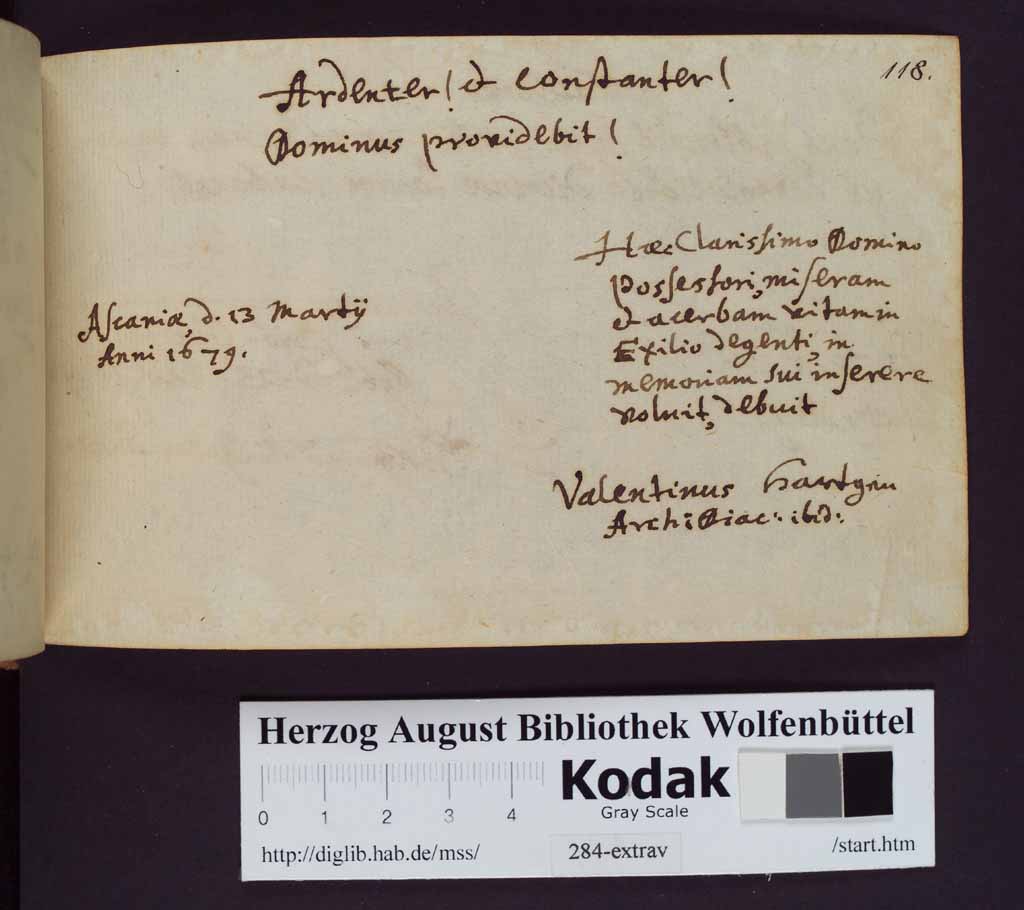 118.
Ardenter! et constanter!
Dominus providebit!
Hæc Clarissimo Domino
Possessori, miseram
et acerbam vitam in
Exilio degenti, in
memoriam sui inserere
voluit, debuit
Ascaniæ, d. 13 Martij
Anni 1679.
Valentinus
Archidiac: ibid:
Herzog August Bibliothek Wolfenbüttel
0 1 2 3 4
Kodak
Gray Scale
http://diglib.hab.de/mss/
284-extrav
/start.htm